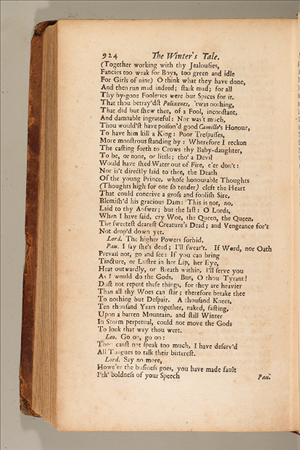 924 The Winter's Tale.
(Together working with thy Jealousies,
Fancies too weak for Boys, too green and idle
For Girls of nine) O think what they have done,
And then run mad indeed; stark mad; for all
Thy by-gone Fooleries were but Spices for it.
That thou betray'dst Polixenes, 'twas nothing,
That did but shew thee, of a Fool, inconstant,
And damnable ingrateful: Nor was't much,
Thou would'st have poison'd good Camillo's Honour,
To have him kill a King: Poor Trespasses,
More monstrous standing by: Wherefore I reckon
The casting forth to Crows thy Baby-daughter,
To be, or none, or little; tho' a Devil
Would have shed Water out of Fire, e'er don't:
Nor is't directly laid to thee, the Death
Of the young Prince, whose honourable Thoughts
(Thoughts high for one so tender) cleft the Heart
That could conceive a gross and foolish Sire,
Blemish'd his gracious Dam: This is not, no,
Laid to thy Answer; but the last: O Lords,
When I have said, cry Woe, the Queen, the Queen,
The sweetest dearest Creature's Dead; and Vengeance for't
Not drop'd down yet.
Lord. The higher Powers forbid.
Pau. I say she's dead; I'll swear't. If Word, nor Oath
Prevail not, go and see: If you can bring
Tincture, or Lustre in her Lip, her Eye,
Heat outwardly, or Breath within, I'll serve you
As I would do the Gods. But, O thou Tyrant!
Dost not repent these things, for they are heavier
Than all thy Woes can stir; therefore betake thee
To nothing but Despair. A thousand Knees,
Ten thousand Years together, naked, fasting,
Upon a barren Mountain, and still Winter
In Storm perpetual, could not move the Gods
To look that way thou wert.
Leo. Go on, go on:
Thou canst not speak too much, I have deserv'd
All Tongues to talk their bitterest.
Lord. Say no more,
Howe'er the business goes, you have made fault
I'th' boldness of your Speech
Pau.